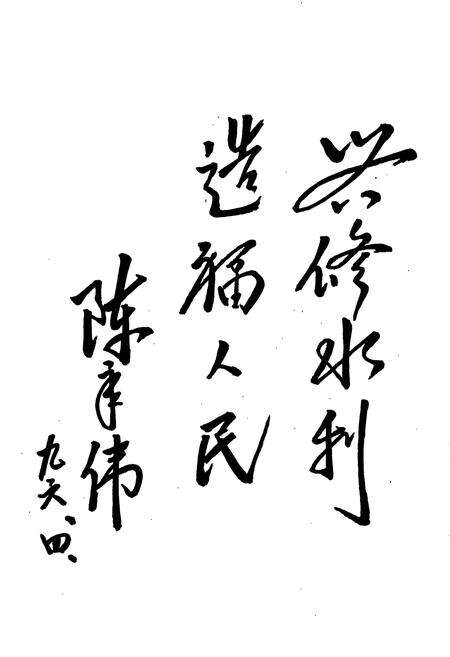 兴修水利
造福人民
陈伟
九六、四、